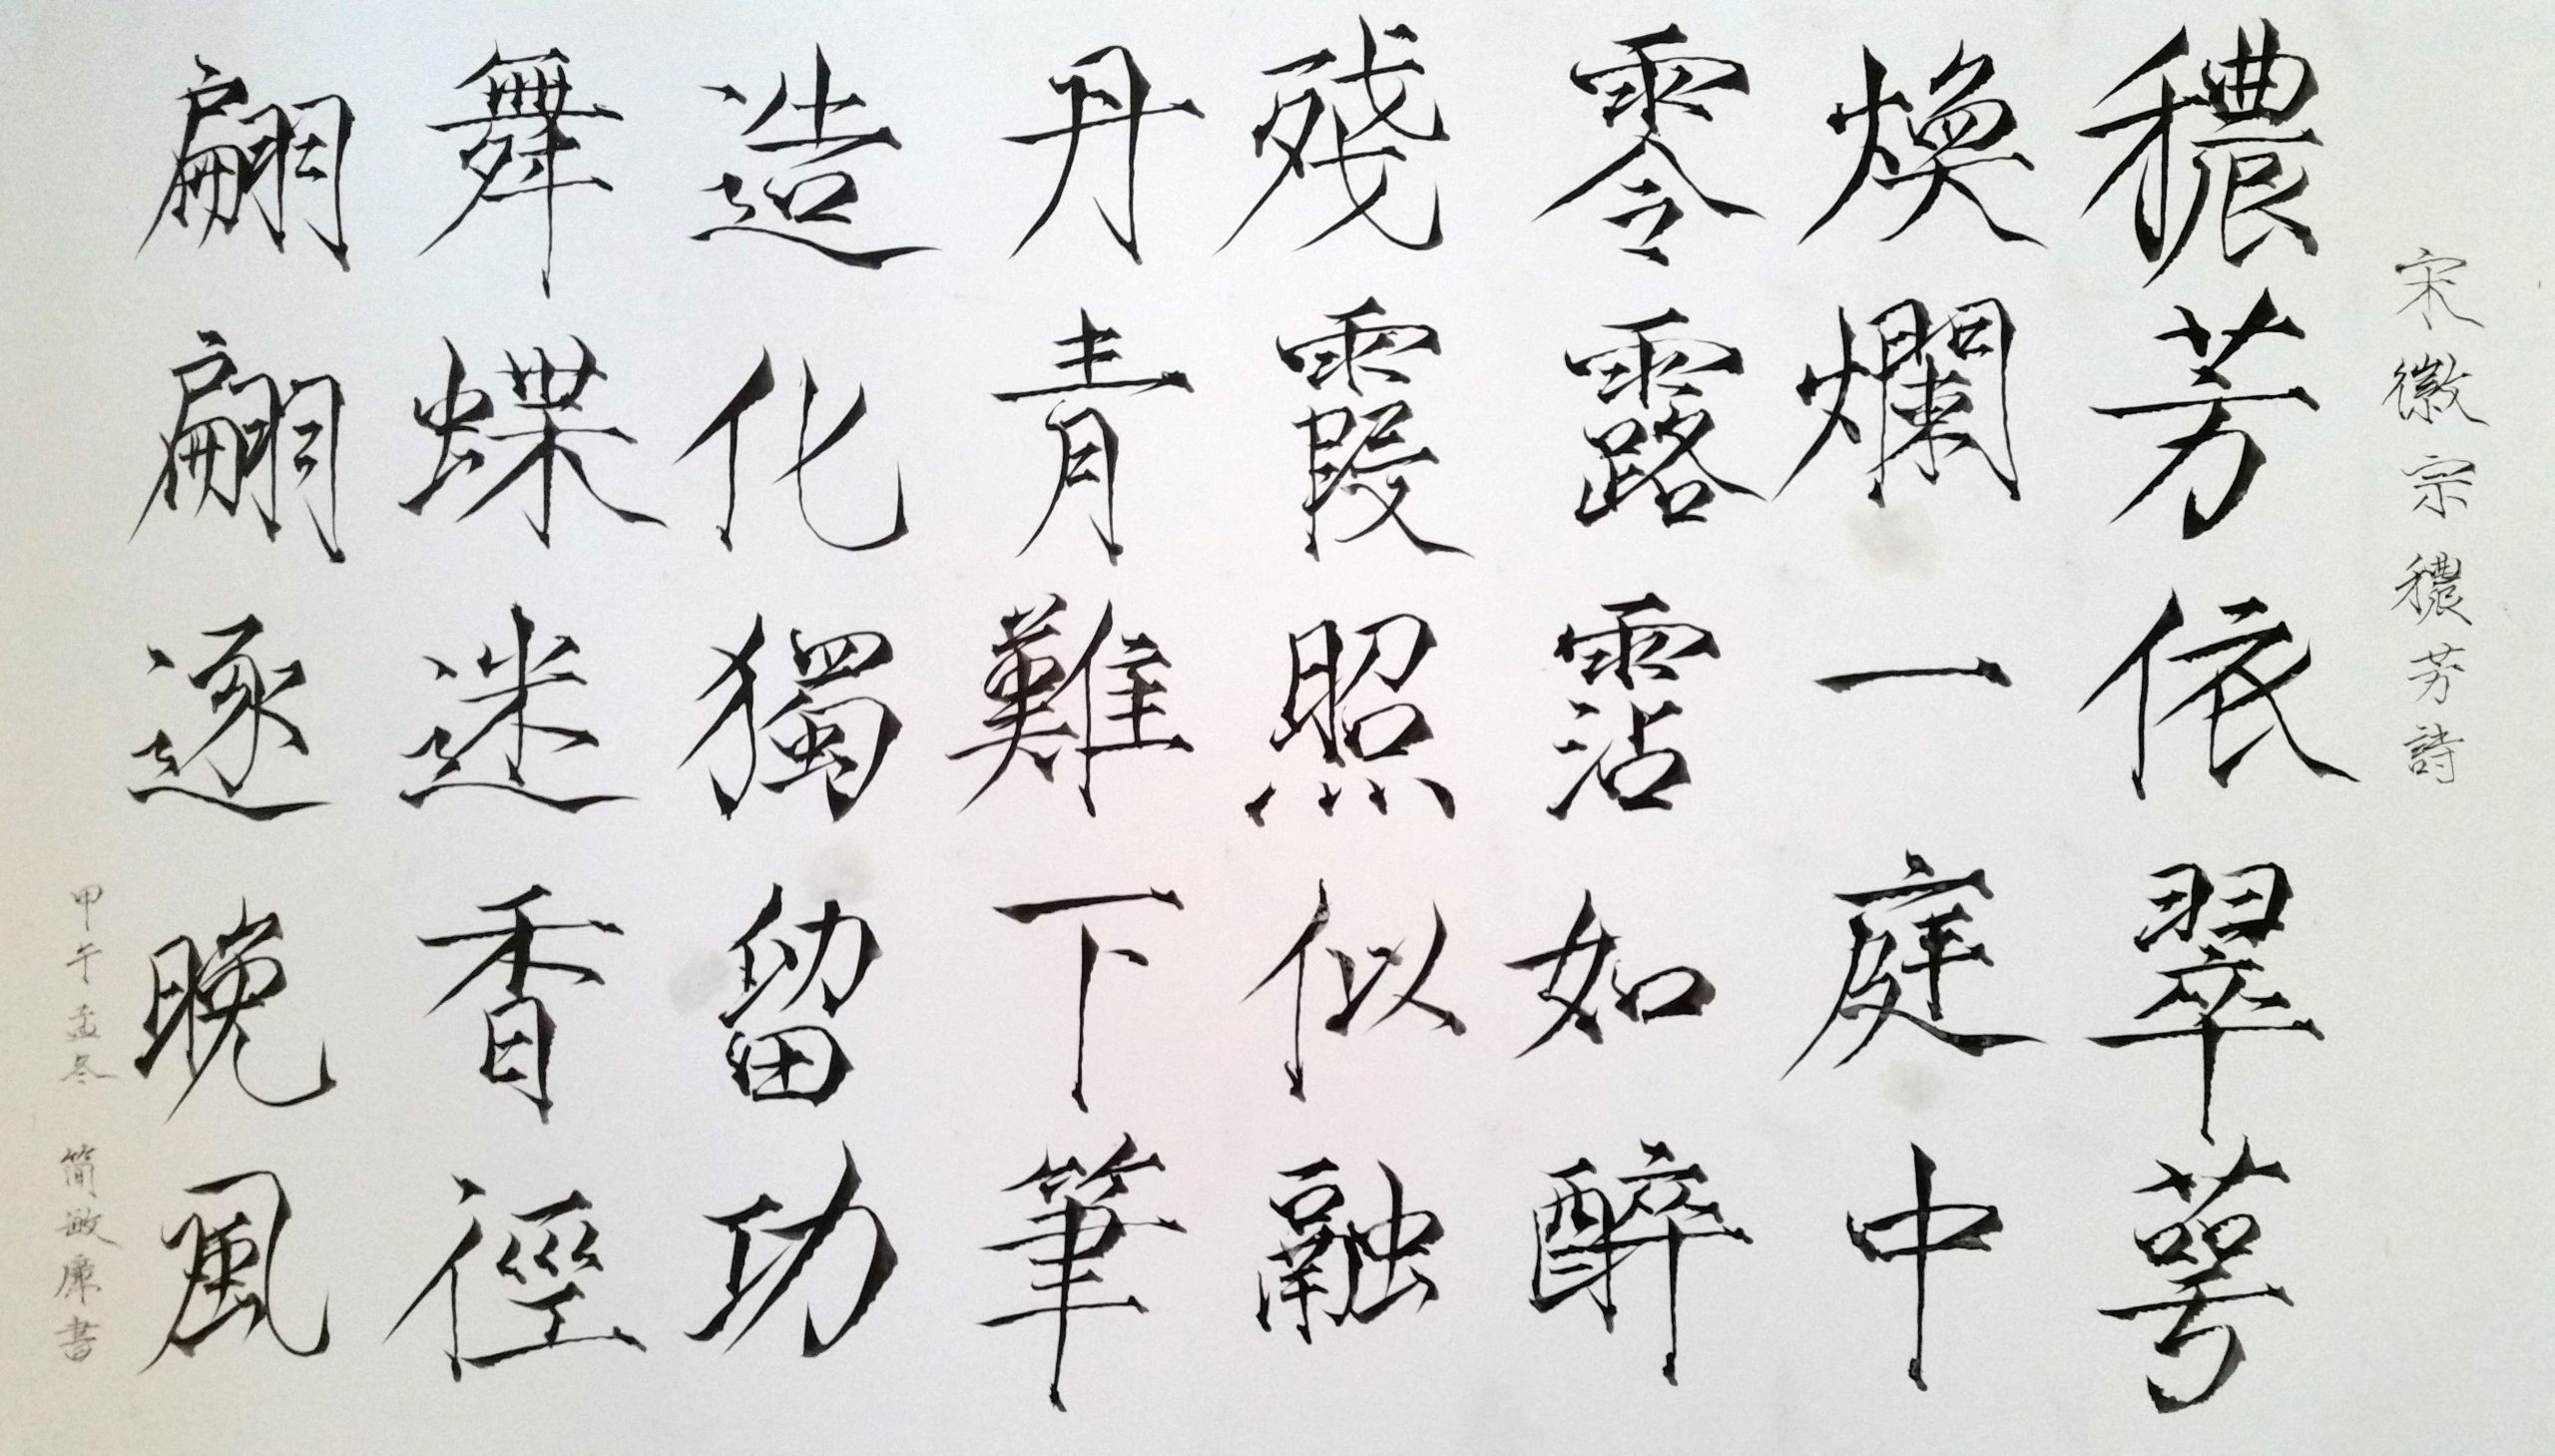 宋徽宗穠芳詩
穠芳依翠萼
煥爛一庭中
零露霑如醉
殘霞照似融
丹青難下筆
造化獨留功
舞蝶迷香徑
翩翩逐晚風
甲午孟冬 簡敏廉書